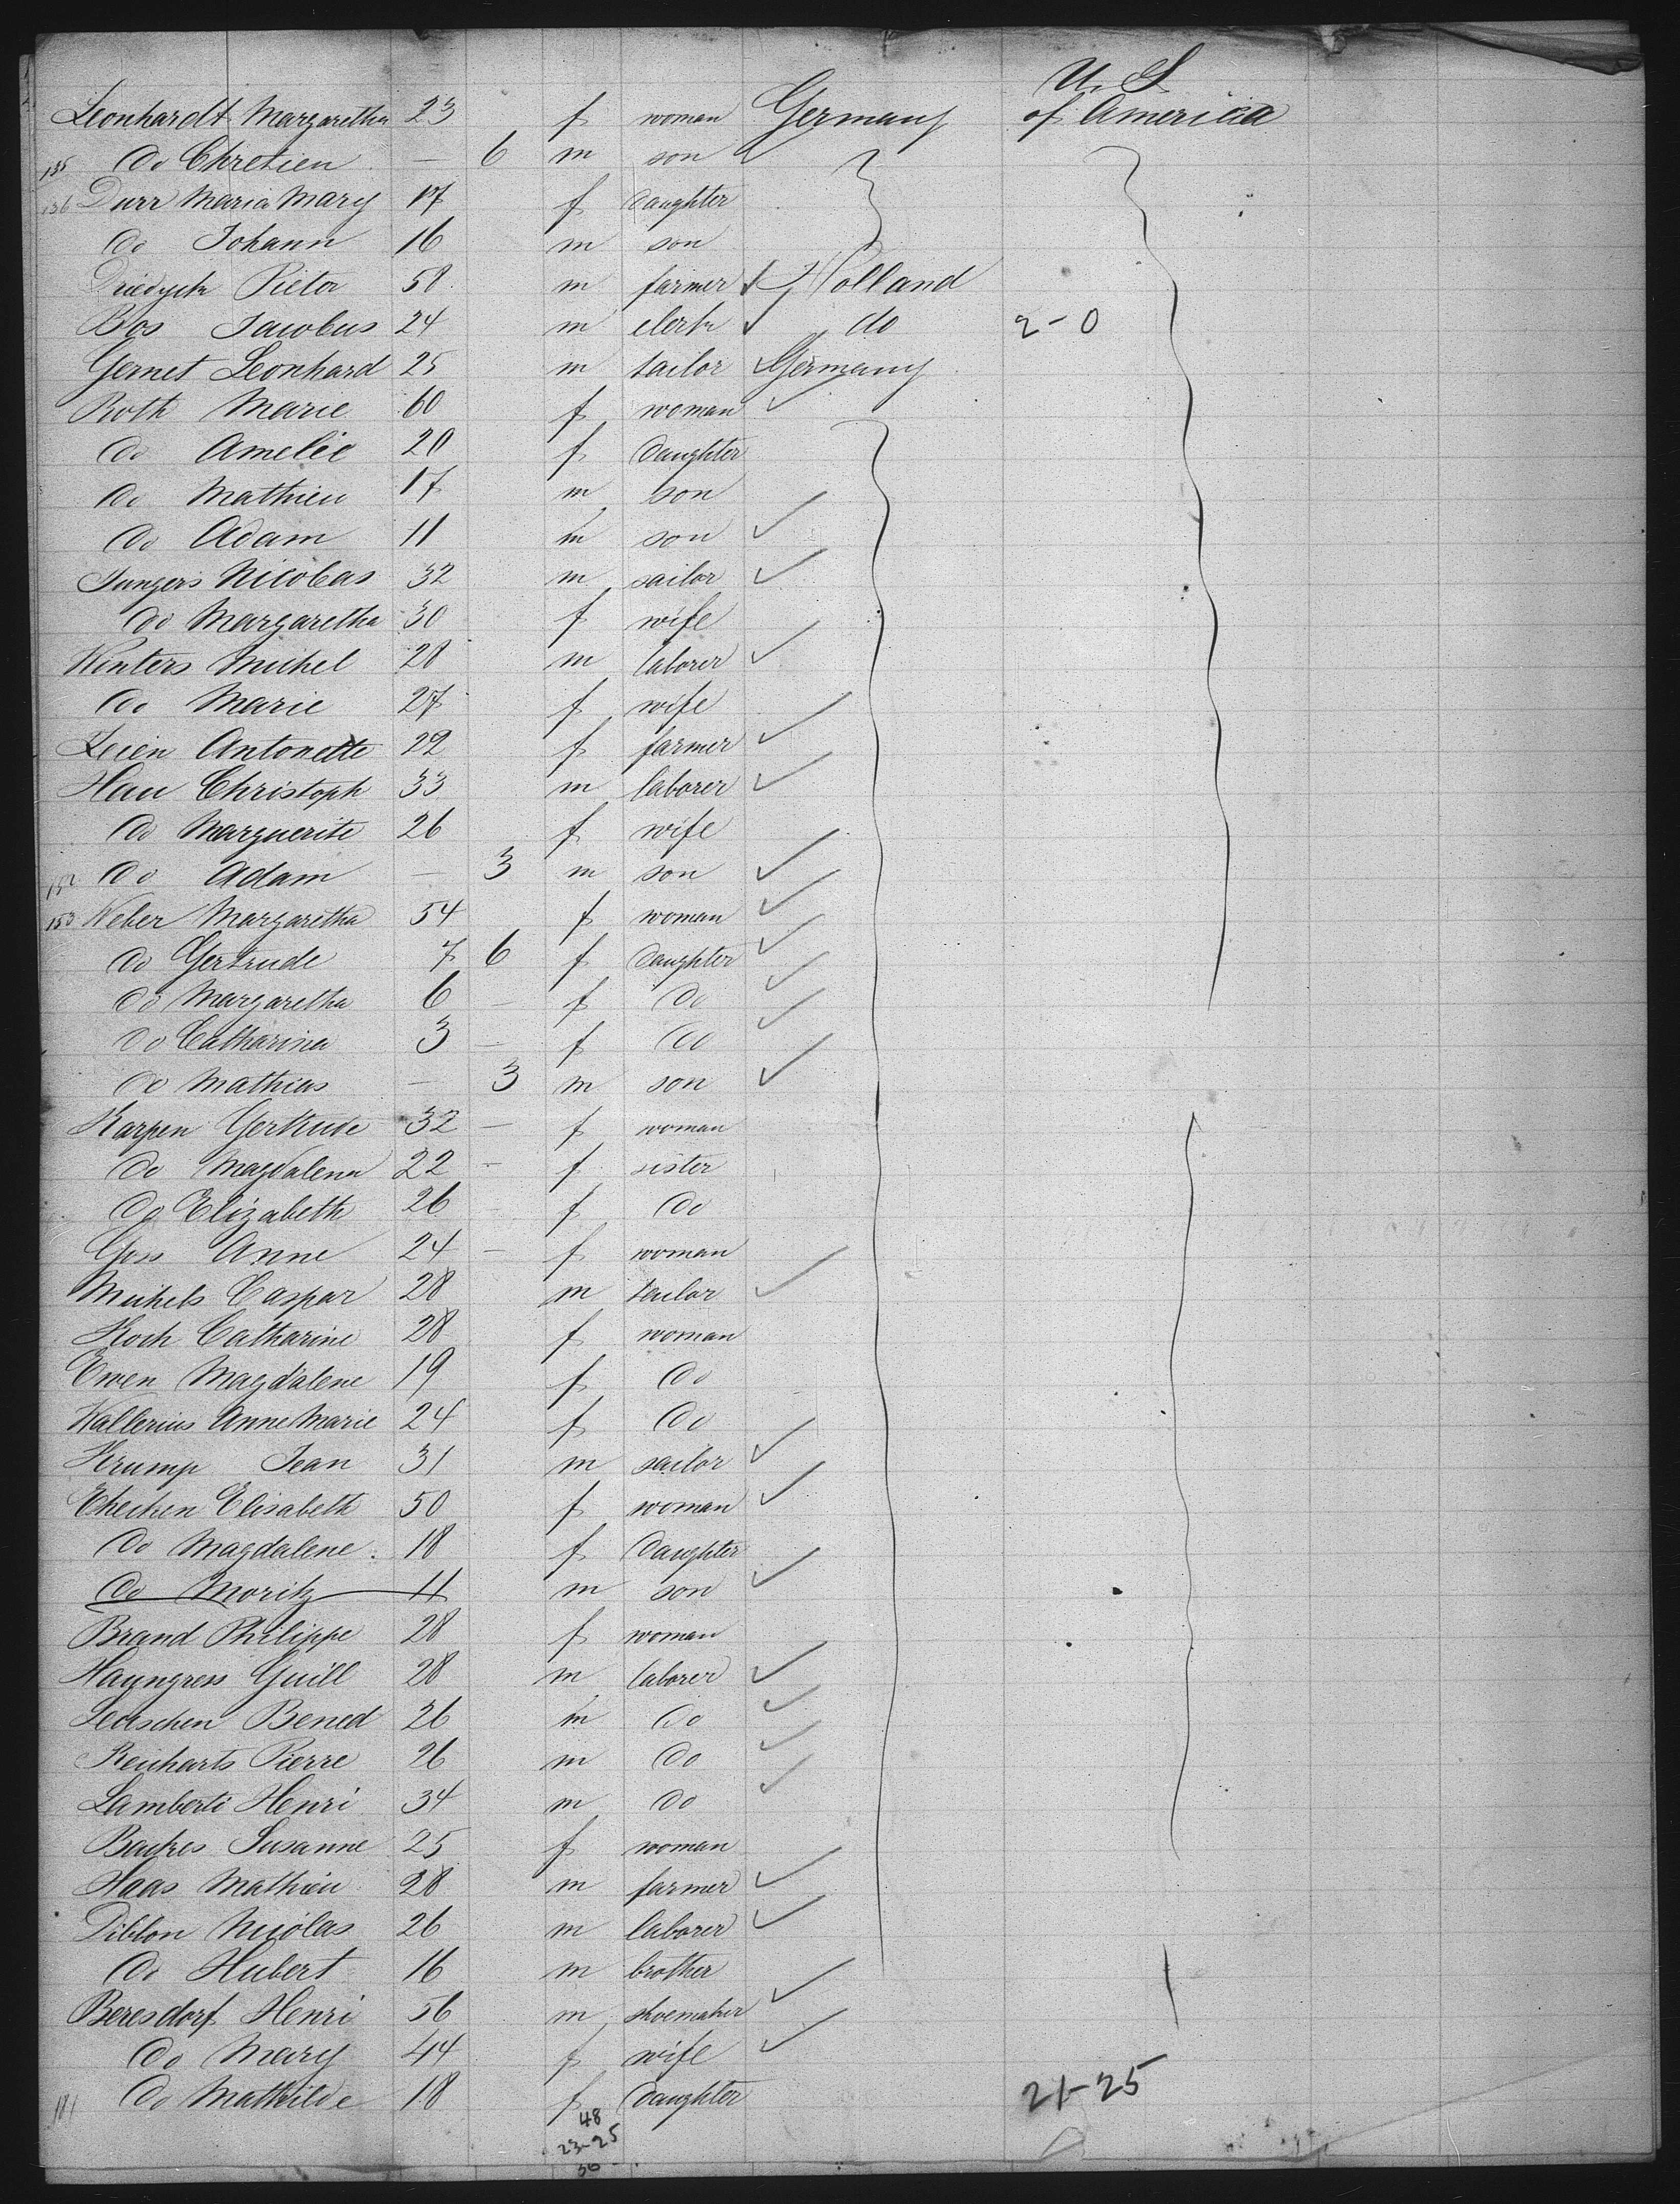 U. S.
Leonhardt Margaretha 23 f woman Germany of America
135 do Chretien — 6 m son
136 Durr Maria Mary 17 f daughter
do Johann 16 m son
Pieter 58 m farmer Holland
Bos Jacobus 24 m clerk do 2-0
Gernet Leonhard 25 m tailor Germany
Roth Marie 60 f woman
do Amelie 20 f daughter
do Mathieu 17 m son
do Adam 11 m son
Jungers Nicolas 32 m sailor
do Margaretha 30 f wife
Winters Michel 28 m laborer
do Marie 27 f wife
Leien Antonette 22 f farmer
Hau Christoph 33 m laborer
do Marguerite 26 f wife
152 do Adam — 3 m son
153 Weber Margaretha 54 f woman
do Gertrude 7 6 f daughter
do Margaretha 6 — f do
do Catharina 3 — f do
do Mathias — 3 m son
Karpen Gertrude 32 — f woman
do Magdalena 22 — f sister
do Elizabeth 26 — f do
Goss Anne 24 — f woman
Michels Caspar 28 m tailor
Koch Catharine 28 f woman
Ewen Magdalene 19 f do
Wallerius Anne Marie 24 f do
Krump Jean 31 m sailor
Elisabeth 50 f woman
do Magdalene 18 f daughter
do Moritz 11 m son
Brand Philippe 28 f woman
Guill 28 m laborer
Bened 26 m do
Reicharts Pierre 26 m do
Lamberti Henri 34 m do
Backes Susanne 25 f woman
Haas Mathieu 28 m farmer
Nicolas 26 m laborer
do Hubert 16 m brother
Beresdorf Henri 56 m shoemaker
do Mary 44 f wife
181 do Mathilde 18 f daughter 21-25
48
23-25